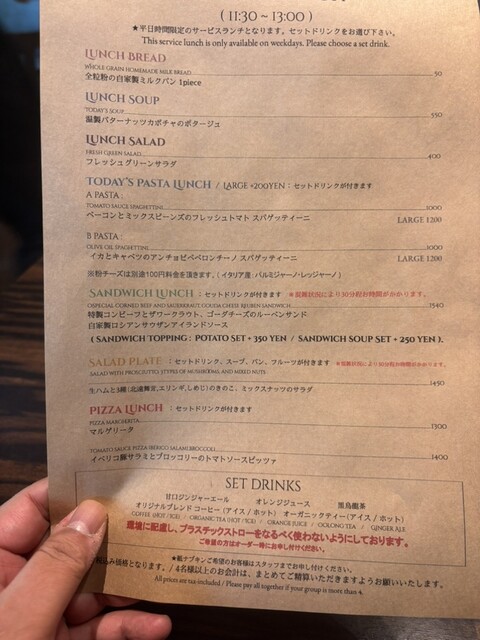 ( 11:30 ~ 13:00 )
★平日時間限定のサービスランチとなります。セットドリンクをお選び下さい。
This service lunch is only available on weekdays. Please choose a set drink.
LUNCH BREAD
WHOLE GRAIN HOMEMADE MILK BREAD 50
全粒粉の自家製ミルクパン 1piece
LUNCH SOUP
TODAY'S SOUP 550
温製バターナッツカボチャのポタージュ
LUNCH SALAD
FRESH GREEN SALAD 400
フレッシュグリーンサラダ
TODAY'S PASTA LUNCH / LARGE +200YEN : セットドリンクが付きます
A PASTA :
TOMATO SAUCE SPAGHETTINI 1000
ベーコンとミックスビーンズのフレッシュトマト スパゲッティーニ LARGE 1200
B PASTA :
OLIVE OIL SPAGHETTINI 1000
イカとキャベツのアンチョビペペロンチーノ スパゲッティーニ LARGE 1200
※粉チーズは別途100円料金を頂きます。( イタリア産 : パルミジャーノ・レッジャーノ )
SANDWICH LUNCH : セットドリンクが付きます ※混雑状況により30分程お時間がかかります。
ESPECIAL CORNED BEEF AND SAUERKRAUT GOUDA CHEESE REUBEN SANDWICH 1540
特製コンビーフとザワークラウト、ゴーダチーズのルーベンサンド
自家製ロシアンサウザンアイランドソース
( SANDWICH TOPPING : POTATO SET + 350 YEN / SANDWICH SOUP SET + 250 YEN ).
SALAD PLATE : セットドリンク、スープ、パン、フルーツが付きます ※混雑状況により30分程お時間がかかります。
SALAD WITH PROSCIUTTO, 3 TYPES OF MUSHROOMS, AND MIXED NUTS 1450
生ハムと3種(北海舞茸,エリンギ,しめじ)のきのこ、ミックスナッツのサラダ
PIZZA LUNCH : セットドリンクが付きます
PIZZA MARGHERITA 1300
マルゲリータ
TOMATO SAUCE PIZZA (IBERICO SALAMI,BROCCOLI) 1400
イベリコ豚サラミとブロッコリーのトマトソースピッツァ
SET DRINKS
甘口ジンジャーエール オレンジジュース 黒烏龍茶
オリジナルブレンド コーヒー (アイス / ホット) オーガニックティー (アイス / ホット)
COFFEE (HOT / ICE) / ORGANIC TEA (HOT / ICE) / ORANGE JUICE / OOLONG TEA / GINGER ALE
環境に配慮し、プラスチックストローをなるべく使わないようにしております。
ご希望の方はオーダー時にお申し付けください。
★紙ナプキンご希望のお客様はスタッフまでお申し付けください。
税込み価格となります。 / 4名様以上のお会計は、まとめてご精算いただきますようお願いいたします。
All prices are tax-included / Please pay all together if your group is more than 4.